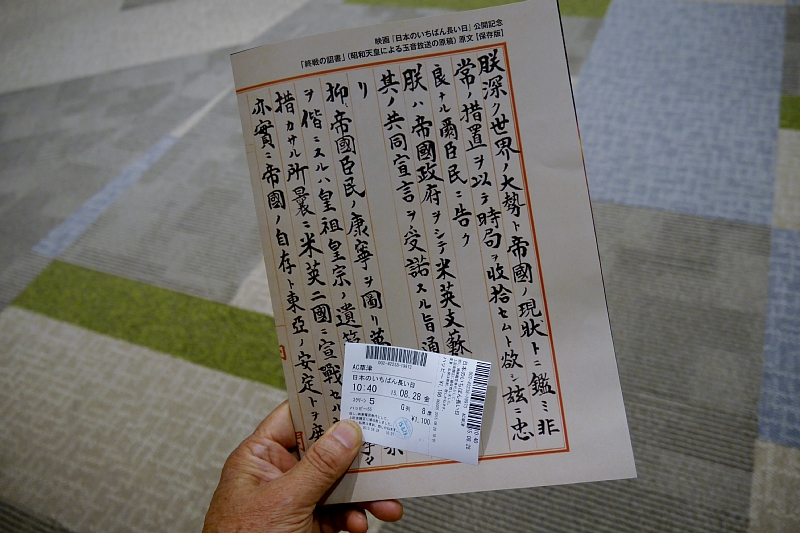 映画『日本のいちばん長い日』公開記念
「終戦の詔書」（昭和天皇による玉音放送の原稿）原文［保存版］
朕深ク世界ノ大勢ト帝國ノ現狀トニ鑑ミ非
常ノ措置ヲ以テ時局ヲ收拾セムト欲シ茲ニ忠
良ナル爾臣民ニ告ク
朕ハ帝國政府ヲシテ米英支蘇
其ノ共同宣言ヲ受諾スル旨通
リ
抑〻帝國臣民ノ康寧ヲ圖リ萬
ヲ偕ニスルハ皇祖皇宗ノ遺範
措カサル所曩ニ米英二國ニ宣戰セル
亦實ニ帝國ノ自存ト東亞ノ安定トヲ庶
AC草津
日本のいちばん長い日
10:40 15.08.28 金
スクリーン 5 G列 8番
ハッピー55 ¥1,100